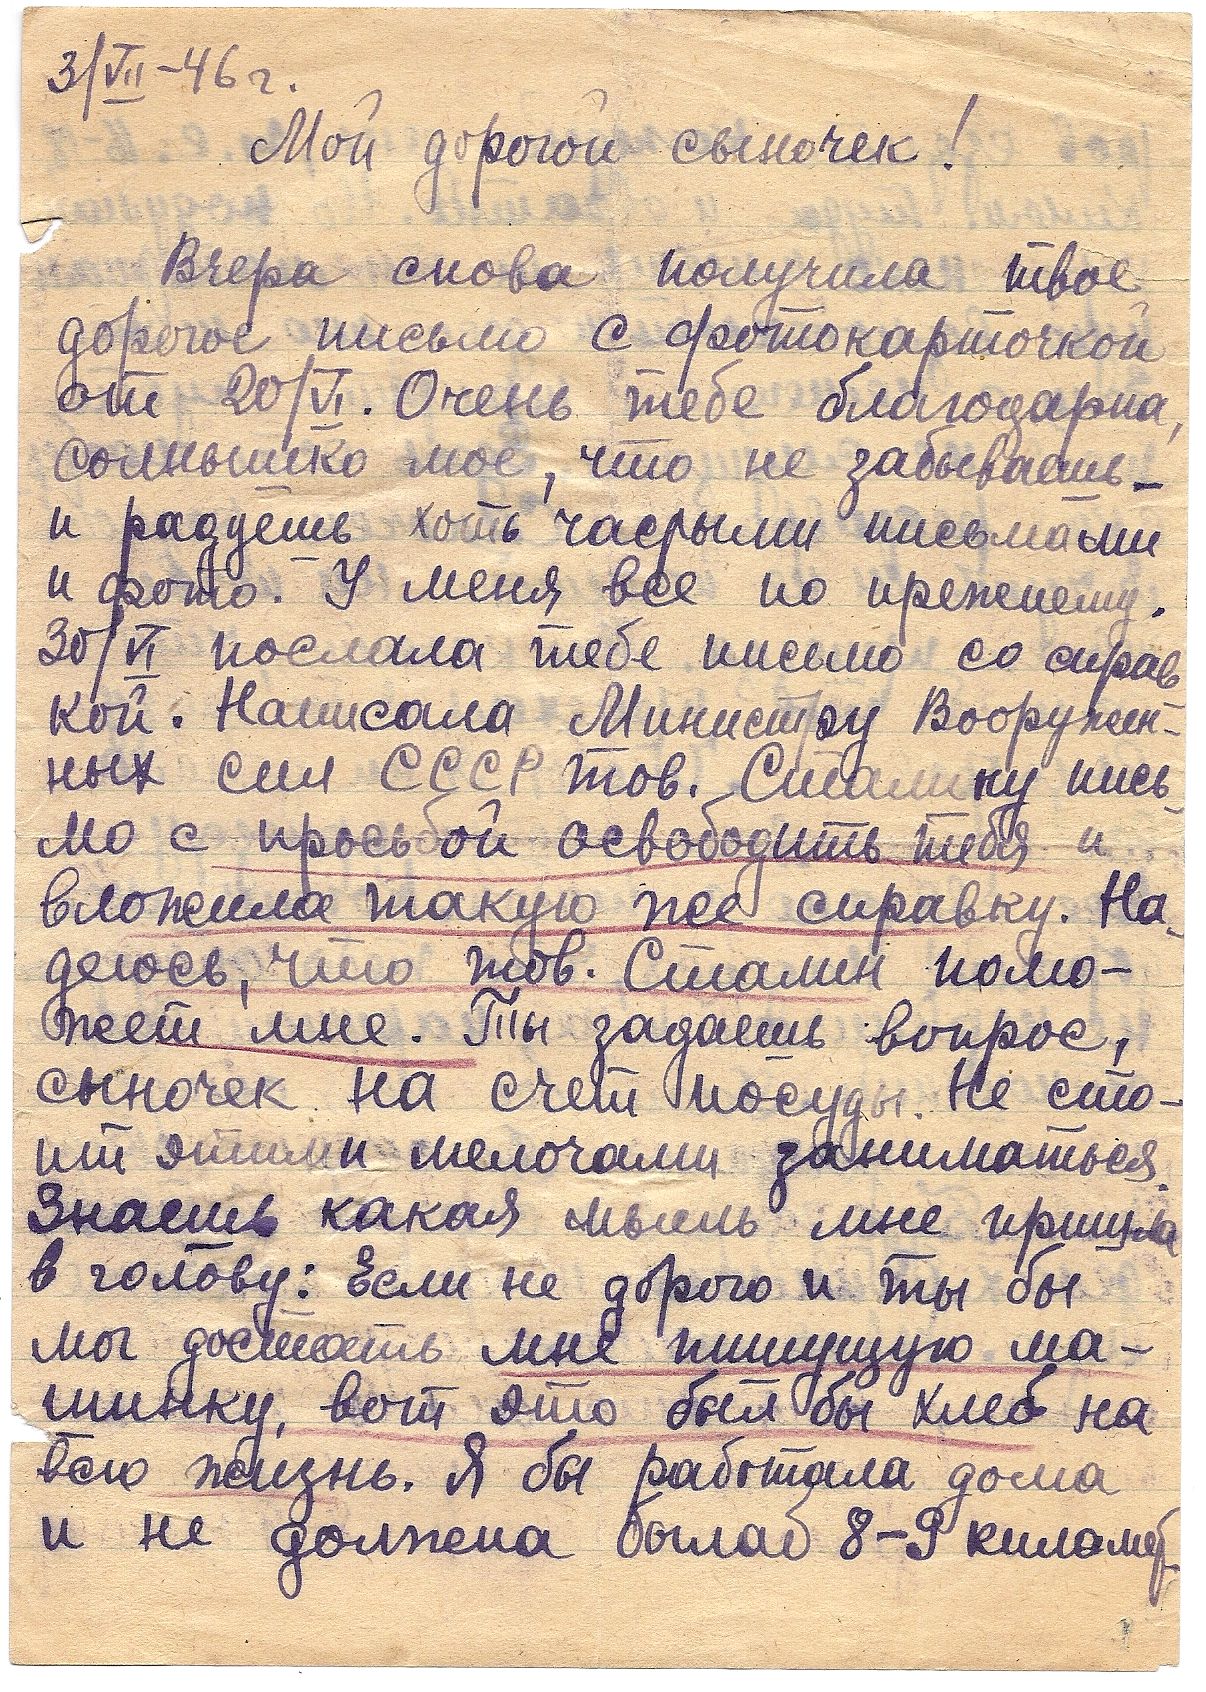 3/VII-46 г.
Мой дорогой сыночек!
Вчера снова получила твое
дорогое письмо с фотокарточкой
от 20/VI. Очень тебе благодарна,
солнышко мое, что не забываешь
и радуешь хоть частыми письмами
и фото. У меня все по прежнему.
30/VI послала тебе письмо со справ
кой. Написала Министру Вооружен-
ных сил СССР тов. Сталину пись-
мо с просьбой освободить тебя и
вложила такую же справку. На-
деюсь, что тов. Сталин помо-
жет мне. Ты задаешь вопрос,
сыночек на счет посуды. Не сто-
ит этими мелочами заниматься.
Знаешь какая мысль мне пришла
в голову: Если не дорого и ты бы
мог достать мне пишущую ма-
шинку, вот это был бы хлеб на
всю жизнь. Я бы работала дома
и не должна былаб 8-9 километ